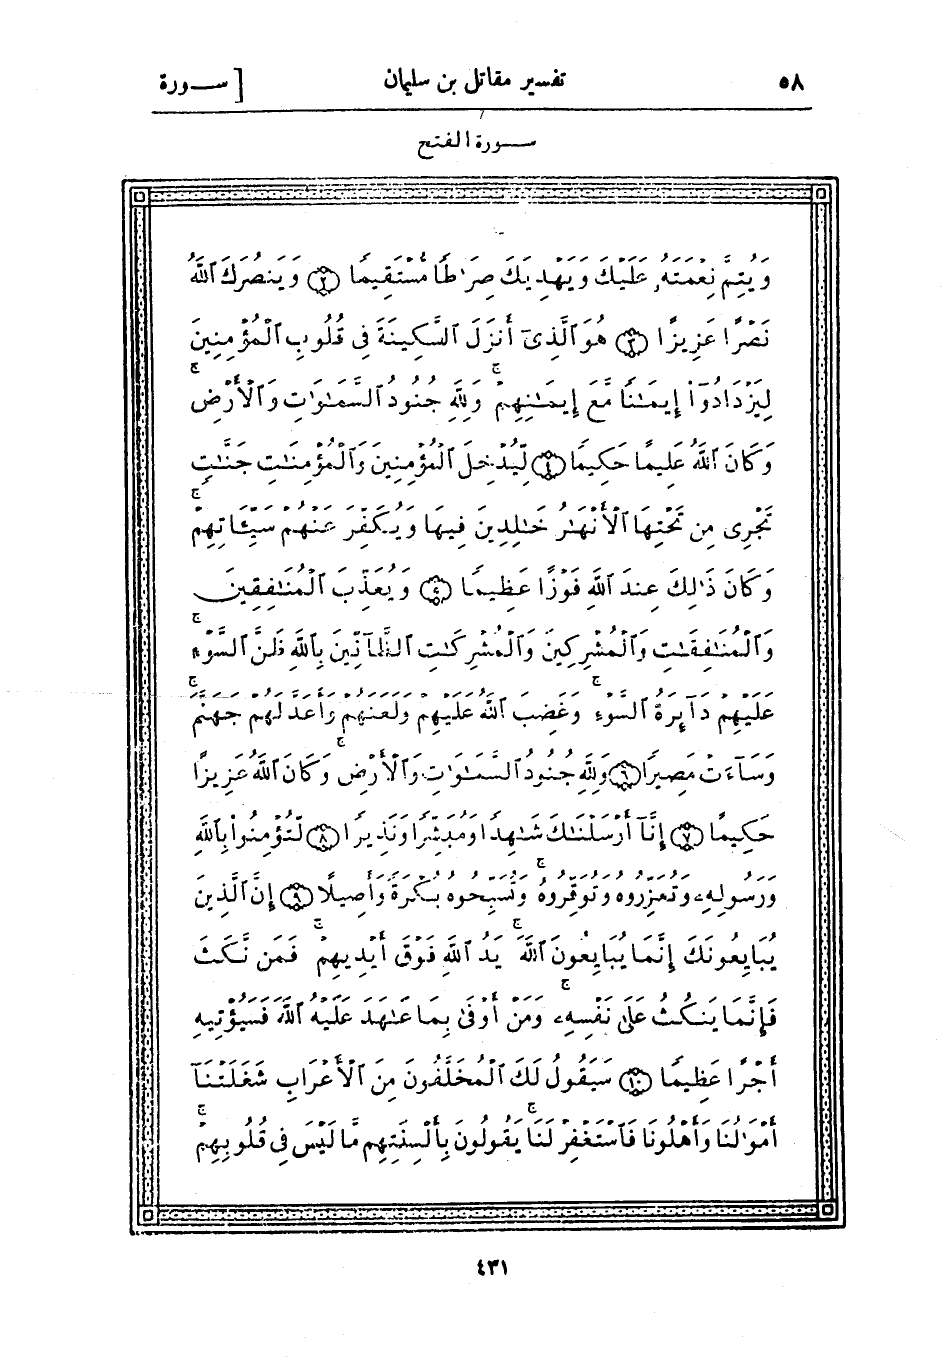 ٥٨ تفسير مقاتل بن سليمان [ ســورة
ســورة الفتح
وَيُتِمَّ نِعْمَتَهُۥ عَلَيْكَ وَيَهْدِيَكَ صِرَٰطًا مُّسْتَقِيمًا ۝٢ وَيَنصُرَكَ ٱللَّهُ
نَصْرًا عَزِيزًا ۝٣ هُوَ ٱلَّذِىٓ أَنزَلَ ٱلسَّكِينَةَ فِى قُلُوبِ ٱلْمُؤْمِنِينَ
لِيَزْدَادُوٓا۟ إِيمَٰنًا مَّعَ إِيمَٰنِهِمْ ۚ وَلِلَّهِ جُنُودُ ٱلسَّمَٰوَٰتِ وَٱلْأَرْضِ ۚ
وَكَانَ ٱللَّهُ عَلِيمًا حَكِيمًا ۝٤ لِّيُدْخِلَ ٱلْمُؤْمِنِينَ وَٱلْمُؤْمِنَٰتِ جَنَّٰتٍ
تَجْرِى مِن تَحْتِهَا ٱلْأَنْهَٰرُ خَٰلِدِينَ فِيهَا وَيُكَفِّرَ عَنْهُمْ سَيِّـَٔاتِهِمْ ۚ
وَكَانَ ذَٰلِكَ عِندَ ٱللَّهِ فَوْزًا عَظِيمًا ۝٥ وَيُعَذِّبَ ٱلْمُنَٰفِقِينَ
وَٱلْمُنَٰفِقَٰتِ وَٱلْمُشْرِكِينَ وَٱلْمُشْرِكَٰتِ ٱلظَّآنِّينَ بِٱللَّهِ ظَنَّ ٱلسَّوْءِ ۚ
عَلَيْهِمْ دَآئِرَةُ ٱلسَّوْءِ ۖ وَغَضِبَ ٱللَّهُ عَلَيْهِمْ وَلَعَنَهُمْ وَأَعَدَّ لَهُمْ جَهَنَّمَ ۖ
وَسَآءَتْ مَصِيرًا ۝٦ وَلِلَّهِ جُنُودُ ٱلسَّمَٰوَٰتِ وَٱلْأَرْضِ ۚ وَكَانَ ٱللَّهُ عَزِيزًا
حَكِيمًا ۝٧ إِنَّآ أَرْسَلْنَٰكَ شَٰهِدًا وَمُبَشِّرًا وَنَذِيرًا ۝٨ لِّتُؤْمِنُوا۟ بِٱللَّهِ
وَرَسُولِهِۦ وَتُعَزِّرُوهُ وَتُوَقِّرُوهُ ۚ وَتُسَبِّحُوهُ بُكْرَةً وَأَصِيلًا ۝٩ إِنَّ ٱلَّذِينَ
يُبَايِعُونَكَ إِنَّمَا يُبَايِعُونَ ٱللَّهَ ۚ يَدُ ٱللَّهِ فَوْقَ أَيْدِيهِمْ ۚ فَمَن نَّكَثَ
فَإِنَّمَا يَنكُثُ عَلَىٰ نَفْسِهِۦ ۖ وَمَنْ أَوْفَىٰ بِمَا عَٰهَدَ عَلَيْهُ ٱللَّهَ فَسَيُؤْتِيهِ
أَجْرًا عَظِيمًا ۝١٠ سَيَقُولُ لَكَ ٱلْمُخَلَّفُونَ مِنَ ٱلْأَعْرَابِ شَغَلَتْنَآ
أَمْوَٰلُنَا وَأَهْلُونَا فَٱسْتَغْفِرْ لَنَا ۚ يَقُولُونَ بِأَلْسِنَتِهِم مَّا لَيْسَ فِى قُلُوبِهِمْ ۚ
٤٣١